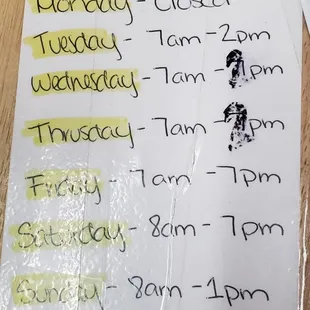 Monday - Closed
Tuesday - 7am - 2pm
Wednesday - 7am - pm
Thrusday - 7am - pm
Friday - 7am - 7pm
Saturday - 8am - 7pm
Sunday - 8am - 1pm